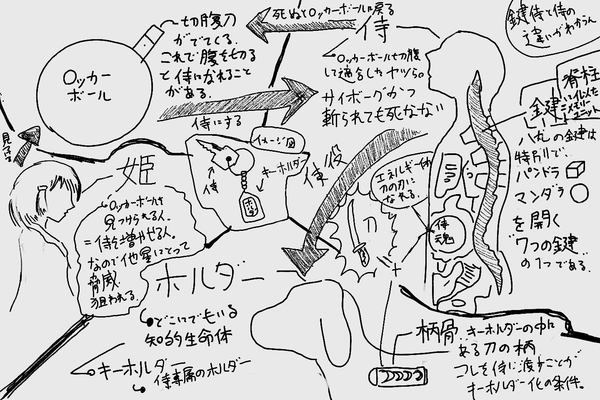 切腹刀
がでてくる.
これで腹を切る
と侍になれること
がある.
ロッカー
ボール
死ぬとロッカーボールに戻る
侍
ロッカーボールを切腹
して適合したヤツら。
サイボーグかつ
斬られても死なない
侍にする
鍵侍と侍の
違いがわからん
脊柱
に似たメモリーユニット
鍵
八丸の鍵は
特別で、
パンドラ
マンダラ
を開く
"7つの鍵"
の1つである.
イメージ図
侍
キーホルダー
使役
エネルギー体
の刀の刃に
なれる.
刀
侍魂
見つける
姫
ロッカーボールを
見つけられる人.
=侍を増やせる人。
なので他星にとって
脅威
狙われる.
ホルダー
どこにでもいる
知的生命体
キーホルダー
侍専属のホルダー
柄骨.
キーホルダーの中に
ある刀の柄
コレを侍に渡すことが
キーホルダー化の条件.